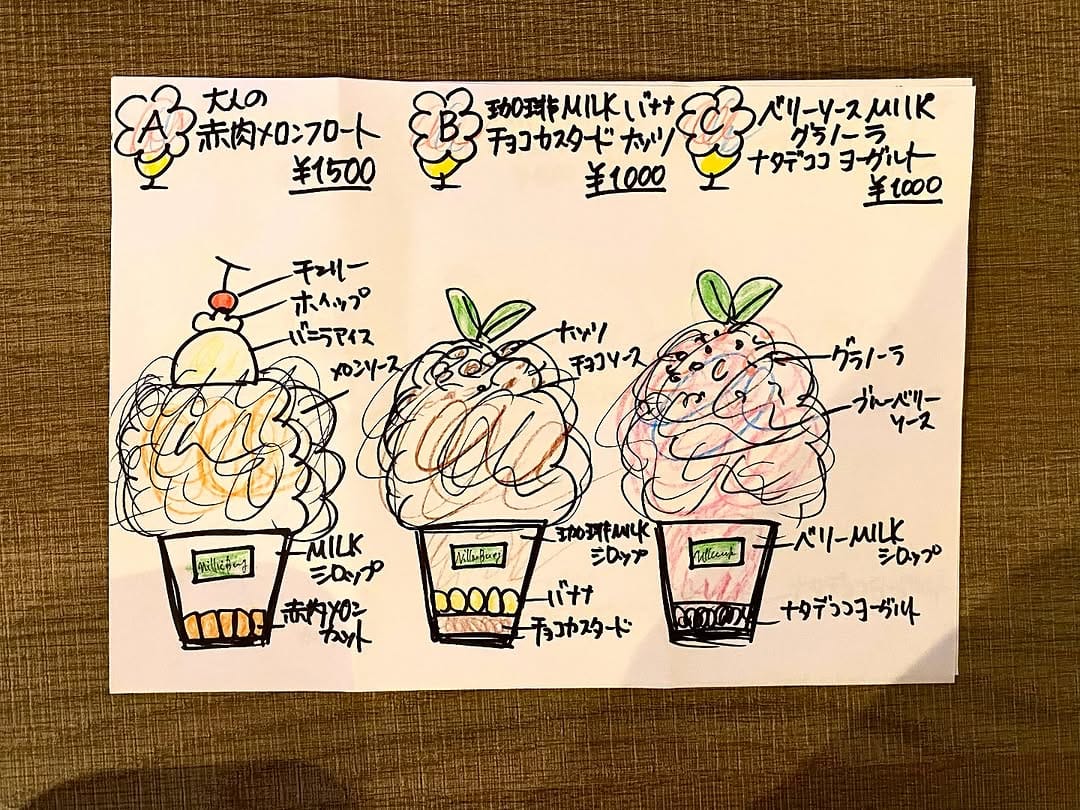 A
大人の
赤肉メロンフロート
¥1500
B
珈琲MILK バナナ
チョコカスタード ナッツ
¥1000
C
ベリーソース MILK
グラノーラ
ナタデココ ヨーグルト
¥1000
チェリー
ホイップ
バニラアイス
メロンソース
MILK
シロップ
赤肉メロン
カット
ナッツ
チョコソース
珈琲MILK
シロップ
バナナ
チョコカスタード
グラノーラ
ブルーベリー
ソース
ベリーMILK
シロップ
ナタデココヨーグルト